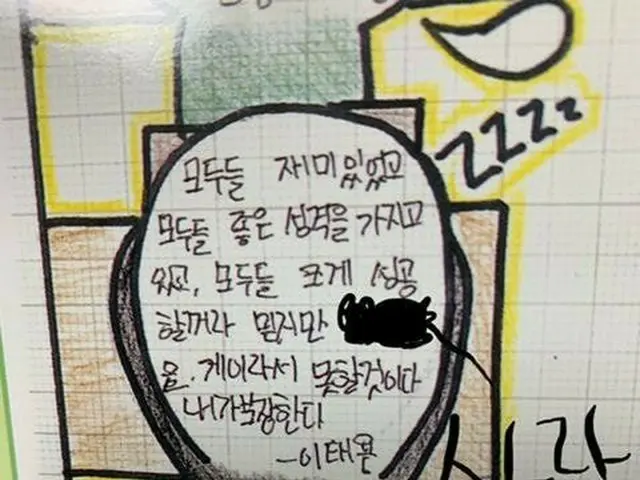 ZZZZ
모두들 재미있었고
모두들 좋은 성격을 가지고
있고, 모두들 크게 성공
할꺼라 믿지만
은. 게이라서 못할것이다
내가 보장한다
-이태